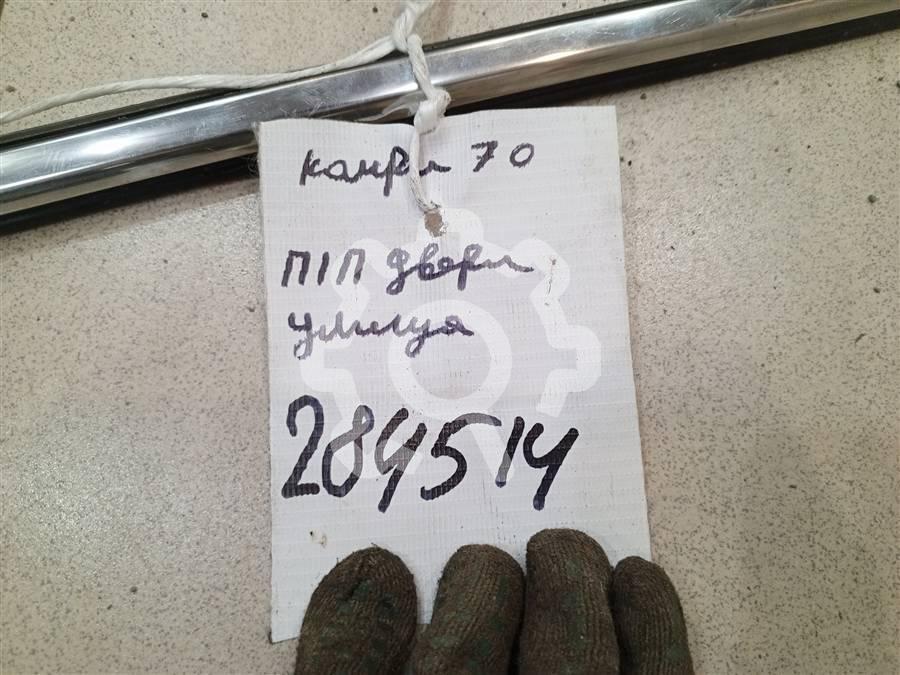 камри 70
П1П двери
улица
284514